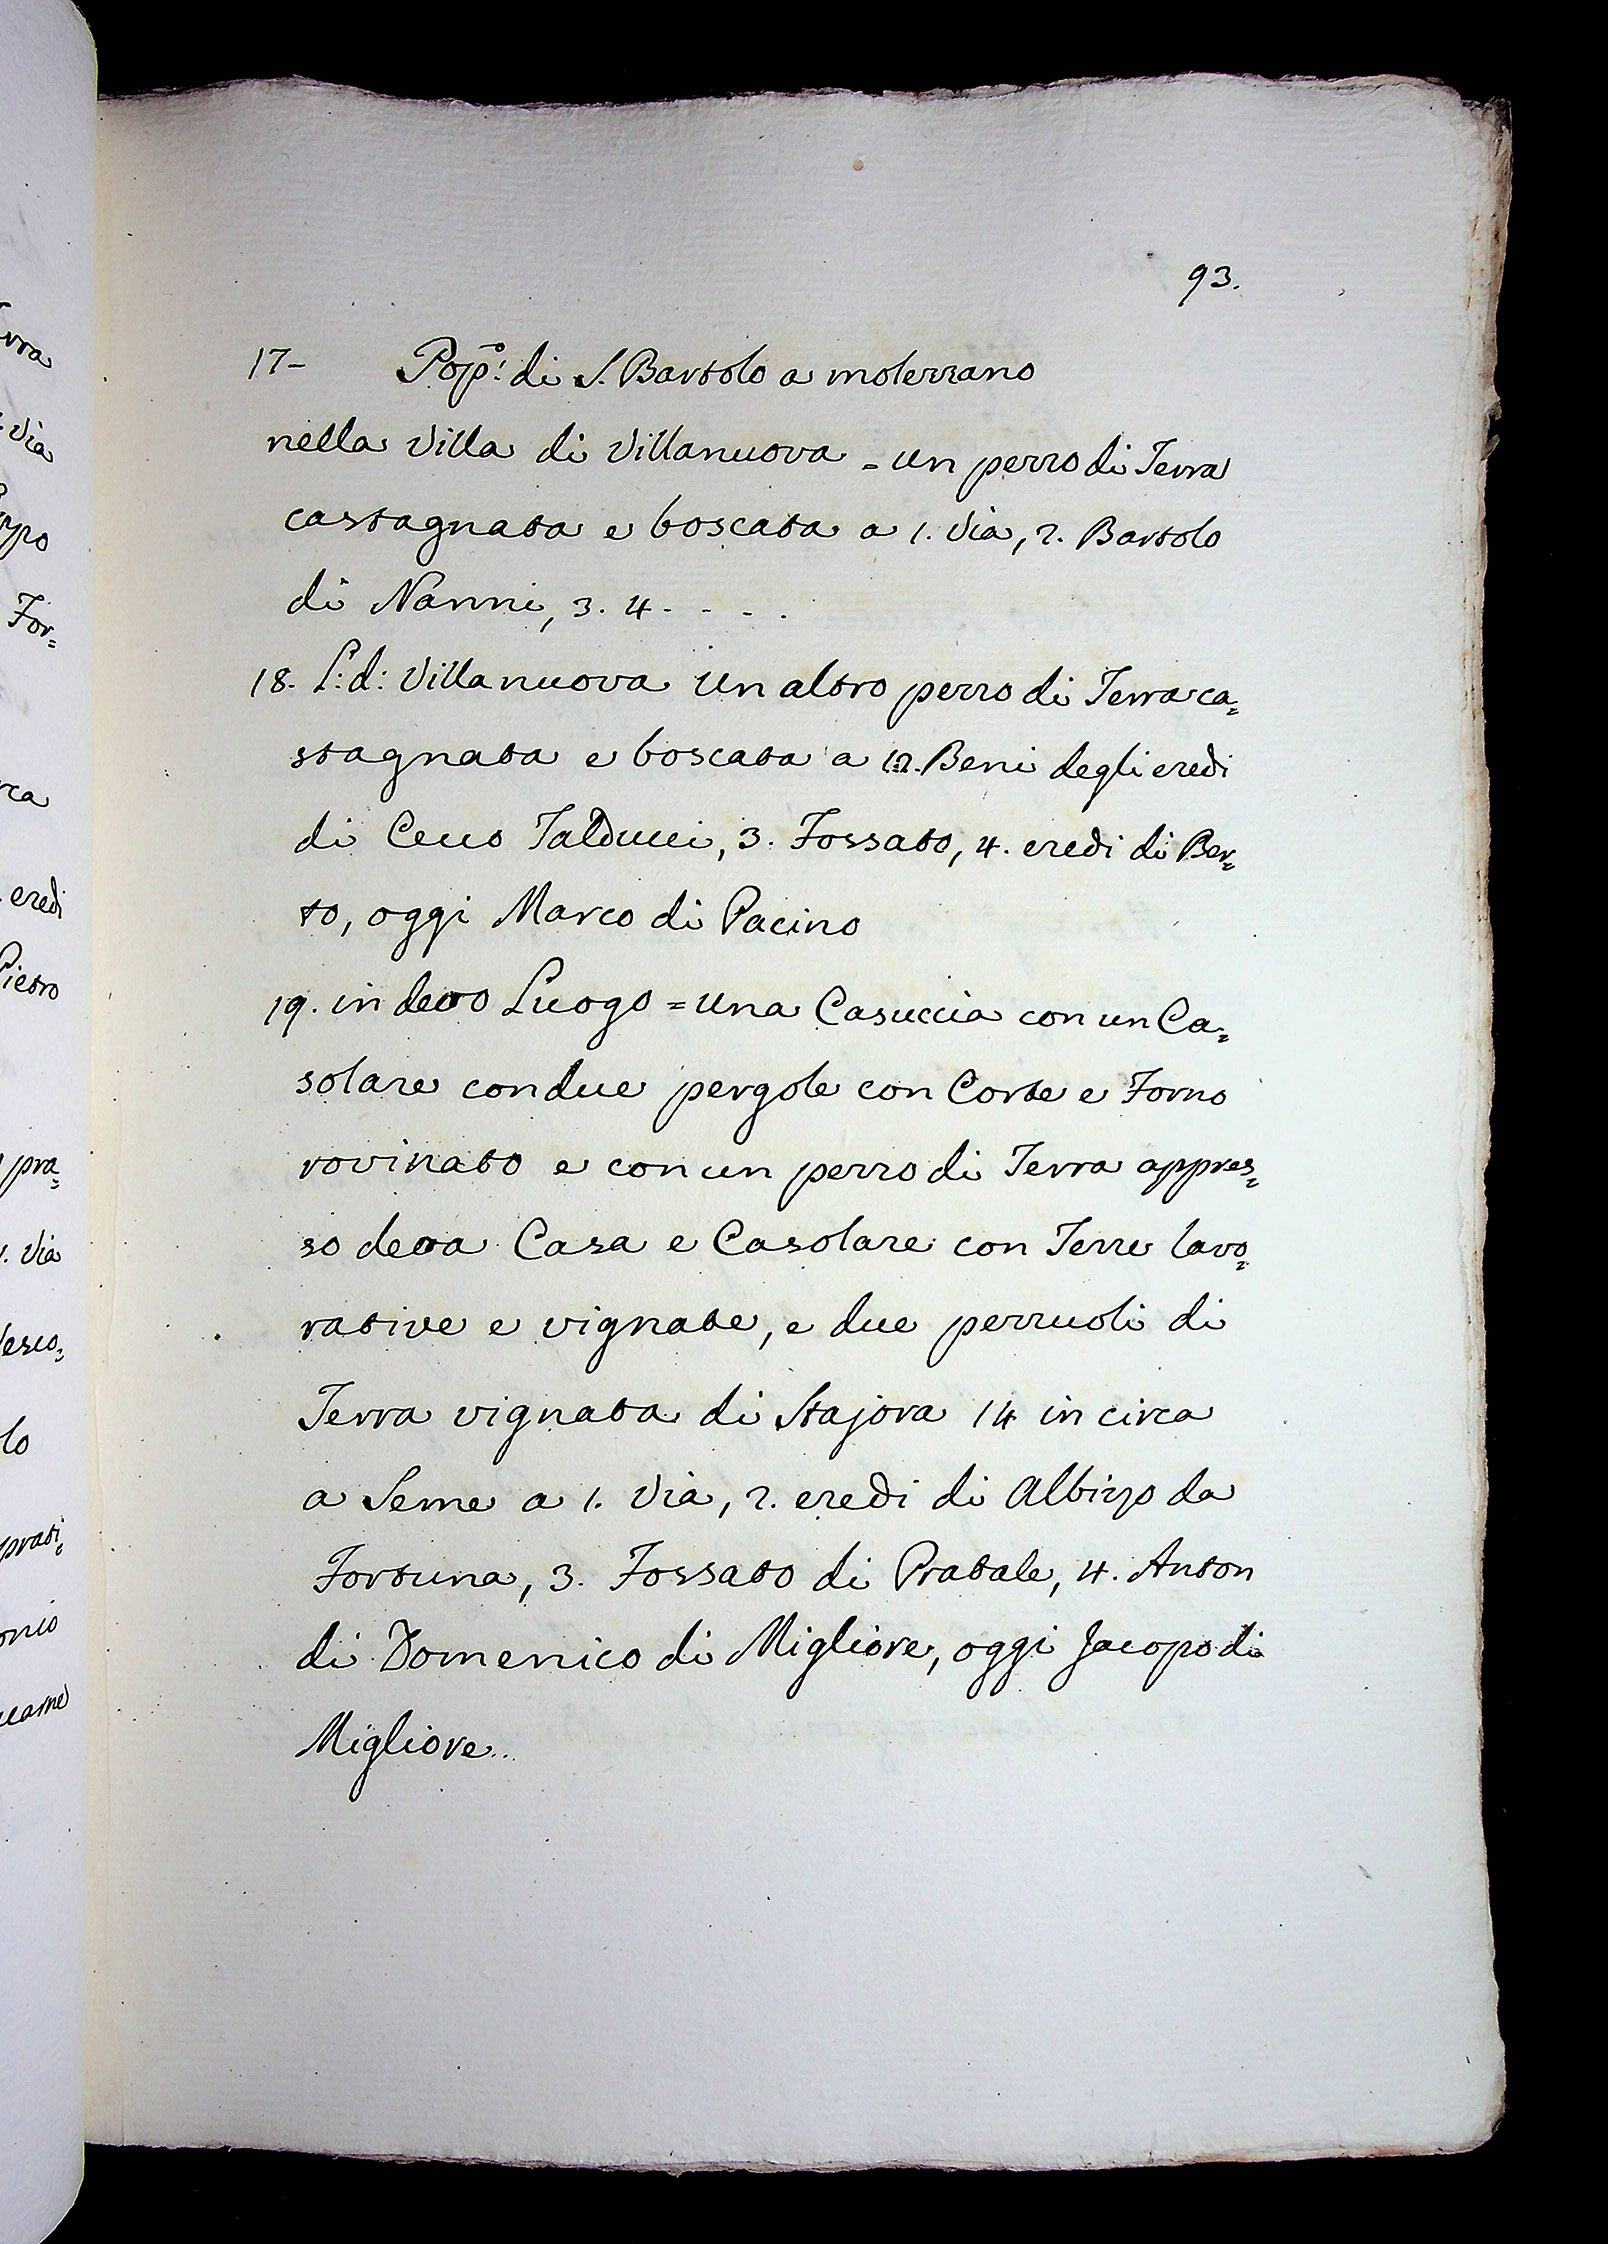 93.
17- Popo: di S. Bartolo a molezzano
nella Villa di Villanuova = un pezzo di Terra
castagnata e boscata a 1. Via, 2. Bartolo
di Nanni, 3. 4. - - .
18. L: d: Villanuova un altro pezzo di Terra ca=
stagnata e boscata a 12. Beni degli eredi
di Cecco Talducci, 3. Fossato, 4. eredi di Ber=
to, oggi Marco di Pacino
19. in detto Luogo = una Casuccia con un Ca=
solare con due pergole con Corte e Forno
rovinato e con un pezzo di Terra appres=
so detta Casa e Casolare con Terre lavo=
rative e vignate, e due pezzuoli di
Terra vignata di Stajora 14 in circa
a Seme a 1. Via, 2. eredi di Albizzo da
Fortuna, 3. Fossato di Pratale, 4. Anton
di Domenico di Migliore, oggi Jacopo di
Migliore..